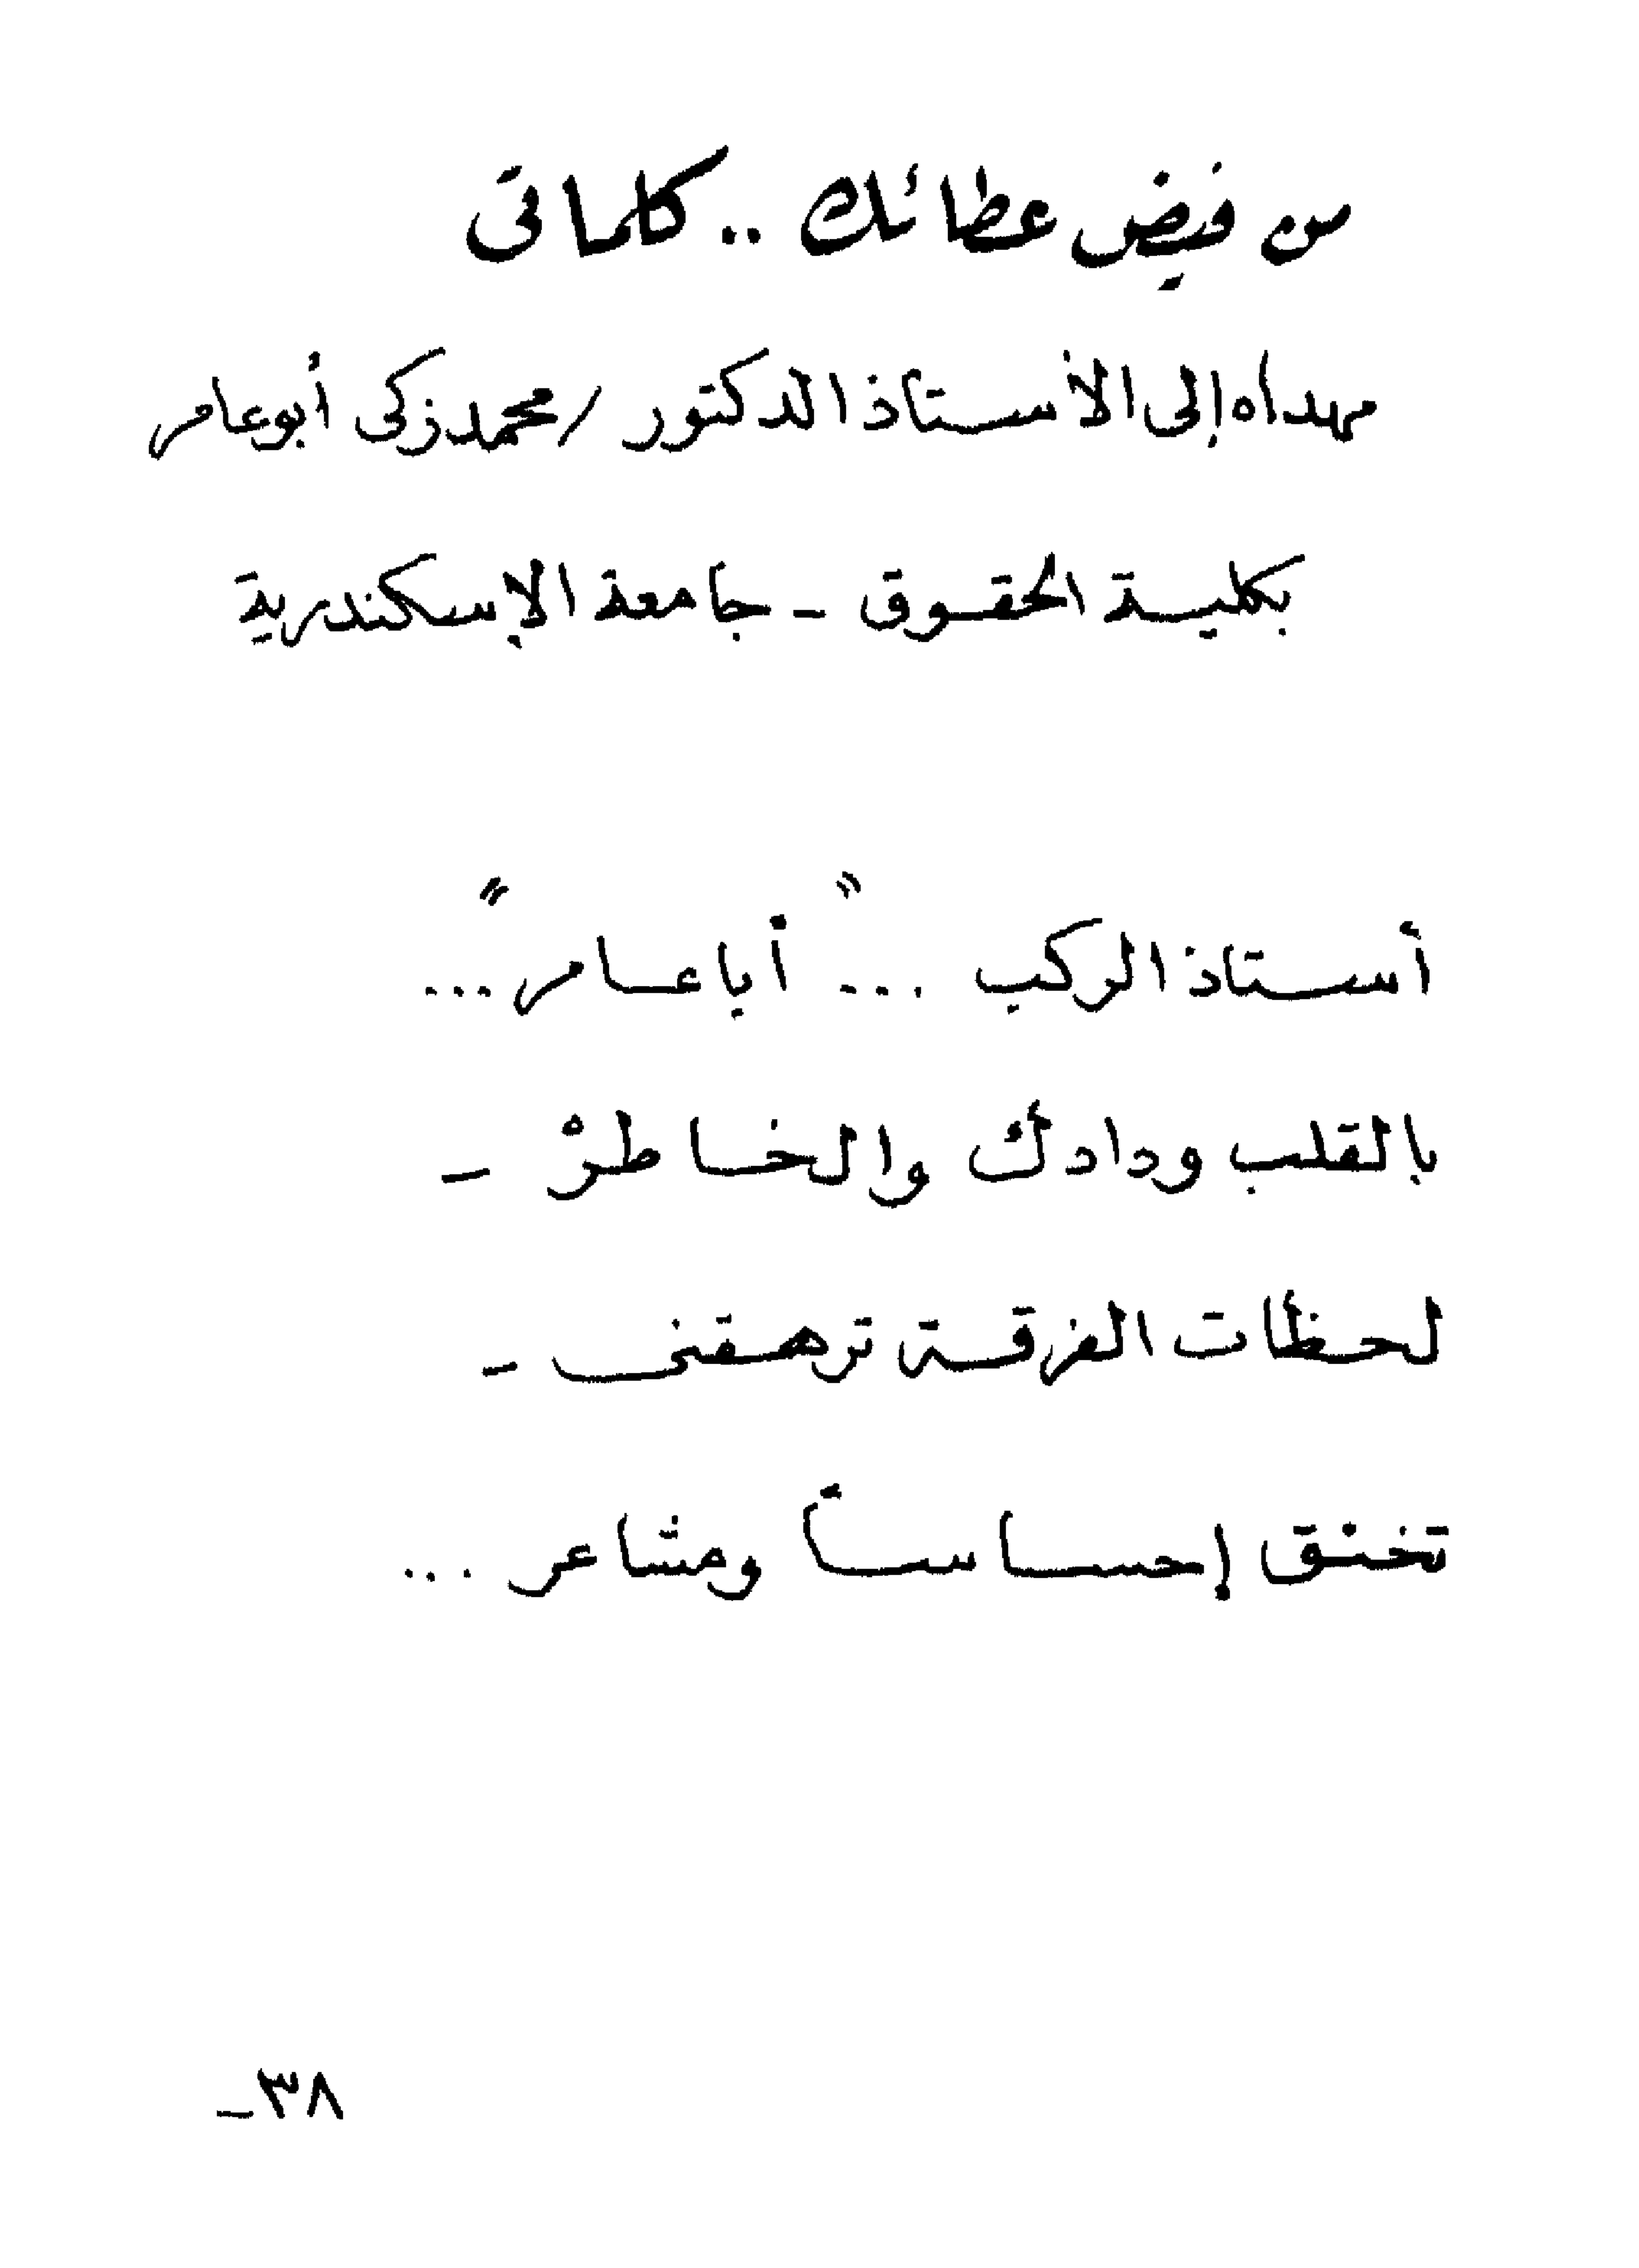 من فيض عطائك .. كلماتى
مهداه إلى الأستاذ الدكتور / محمد زكى أبو عامر
بكلية الحقوق - جامعة الإسكندرية
أستاذ الركب ... "أبا عامر" ...
بالقلب ودادك والخاطرْ -
لحظات الفرقة ترهقنى -
تخنق إحساساً ومشاعر ...
٣٨-